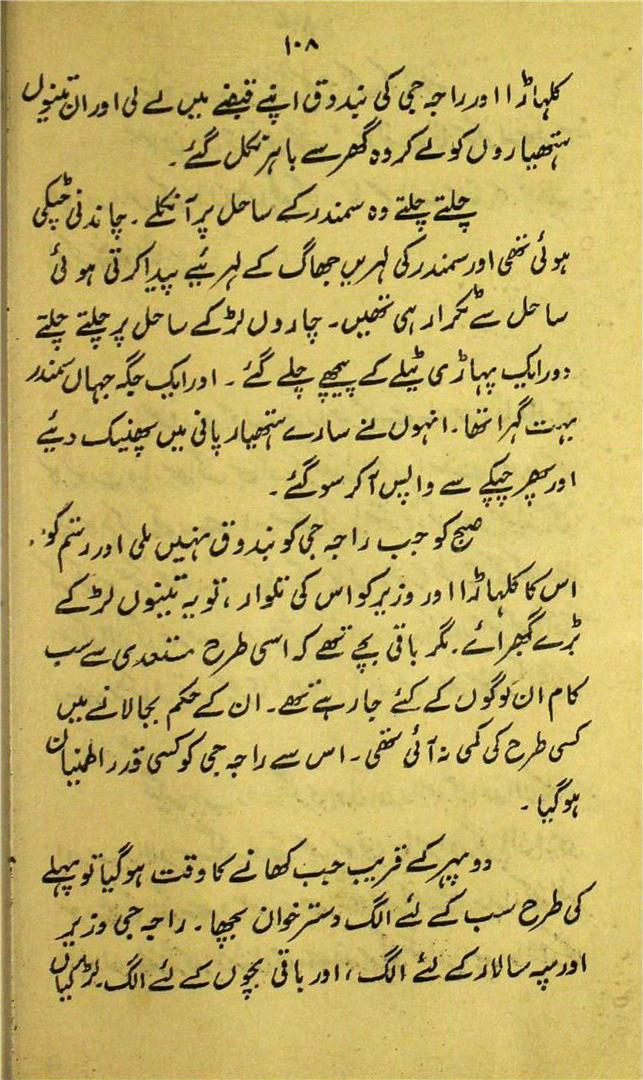 ۱۰۸
کلہاڑا اور راجہ جی کی بندوق اپنے قبضے میں لے لی اور ان تینوں
ہتھیاروں کو لے کر وہ گھر سے باہر نکل گئے۔
چلتے چلتے وہ سمندر کے ساحل پر آ نکلے۔ چاندنی چٹکی
ہوئی تھی اور سمندر کی لہریں جھاگ کے لہرئیے پیدا کرتی ہوئی
ساحل سے ٹکرا رہی تھیں۔ چاروں لڑکے ساحل پر چلتے چلتے
دور ایک پہاڑی ٹیلے کے پیچھے چلے گئے۔ اور ایک جگہ جہاں سمندر
بہت گہرا تھا۔ انہوں نے سارے ہتھیار پانی میں پھینک دیئے
اور پھر چپکے سے واپس آ کر سو گئے۔
صبح کو جب راجہ جی کو بندوق نہیں ملی اور رستم کو
اس کا کلہاڑا اور وزیر کو اس کی تلوار، تو یہ تینوں لڑکے
بڑے گھبرائے۔ مگر باقی بچے تھے کہ اسی طرح مستعدی سے سب
کام ان لوگوں کے کئے جا رہے تھے۔ ان کے حکم بجا لانے میں
کسی طرح کی کمی نہ آئی تھی۔ اس سے راجہ جی کو کسی قدر اطمینان
ہو گیا۔
دوپہر کے قریب جب کھانے کا وقت ہو گیا تو پہلے
کی طرح سب کے لئے الگ دسترخوان بچھا۔ راجہ جی وزیر
اور سپہ سالار کے لئے الگ، اور باقی بچوں کے لئے الگ۔ لڑکیاں